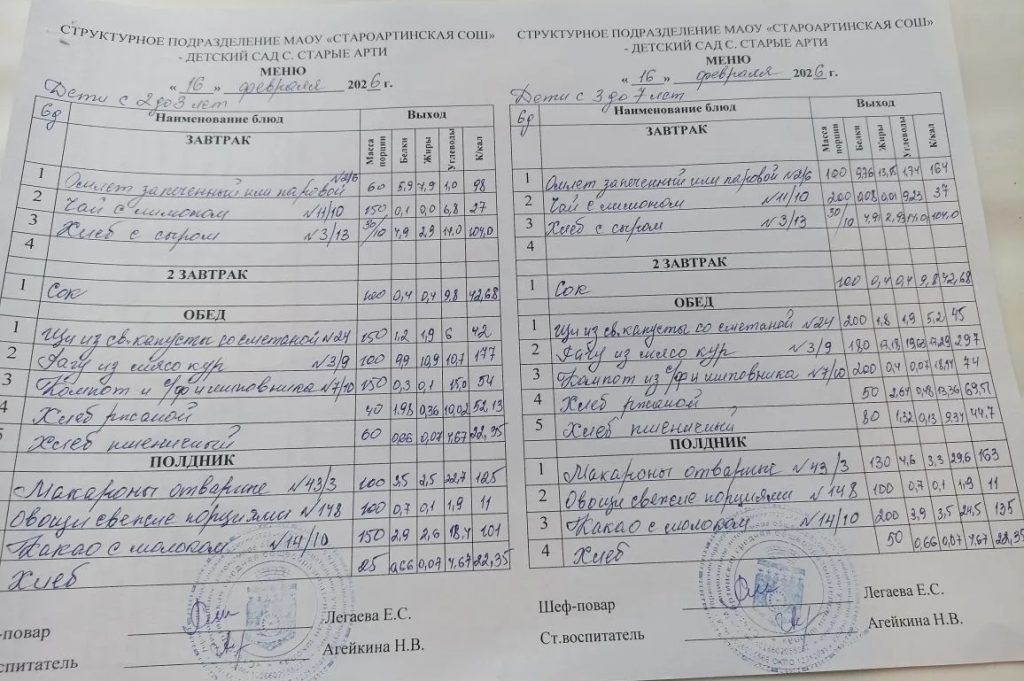 СТРУКТУРНОЕ ПОДРАЗДЕЛЕНИЕ МАОУ «СТАРОАРТИНСКАЯ СОШ»
- ДЕТСКИЙ САД С. СТАРЫЕ АРТИ
МЕНЮ
« 16 » февраля 2026 г.
Дети с 2 до 3 лет
6д Наименование блюд Выход
ЗАВТРАК Масса порции Белки Жиры Углеводы К/кал
1 Омлет запеченный или паровой №2/6 60 5,9 7,9 1,0 98
2 Чай с лимоном №11/10 150 0,1 0,0 6,8 27
3 Хлеб с сыром №3/13 30/10 4,9 2,9 11.0 104,0
4
2 ЗАВТРАК
1 Сок 100 0,4 0,4 9,8 42,68
ОБЕД
1 Щи из св.капусты со сметаной №24 150 1.2 1,9 6 42
2 Рагу из мясо кур №3/9 100 9,9 10,9 10,7 177
3 Компот и с/ф и шиповника №7/10 150 0,3 0,1 15,0 54
4 Хлеб ржаной 40 1.98 0,36 10,02 52,13
5 Хлеб пшеничный 60 0,66 0,07 4,67 22,35
ПОЛДНИК
Макароны отварные №43/3 100 3.5 2,5 22,7 125
Овощи свежие порциями №148 100 0,7 0,1 1,9 11
Какао с молоком №14/10 150 2,9 2,6 18,4 101
Хлеб 25 0,66 0,07 4,67 22,35
ф-повар Легаева Е.С.
спитатель Агейкина Н.В.
СТРУКТУРНОЕ ПОДРАЗДЕЛЕНИЕ МАОУ «СТАРОАРТИНСКАЯ СОШ»
- ДЕТСКИЙ САД С. СТАРЫЕ АРТИ
МЕНЮ
« 16 » февраля 2026 г.
Дети с 3 до 7 лет
6д Наименование блюд Выход
ЗАВТРАК Масса порции Белки Жиры Углеводы К/кал
1 Омлет запеченный или паровой №2/6 100 9,76 13,15 1,74 164
2 Чай с лимоном №11/10 200 0,08 0,01 9,23 37
3 Хлеб с сыром №3/13 30/10 4,9 2,9 11,0 104,0
4
2 ЗАВТРАК
1 Сок 100 0,4 0,4 9,8 42,68
ОБЕД
1 Щи из св.капусты со сметаной №24 200 1,8 1,9 5,2 45
2 Рагу из мясо кур №3/9 180 297
3 Компот из с/ф и шиповника №7/10 200 0,4 0,07 74
4 Хлеб ржаной 50 2.64 0,48 13,36 69,51
5 Хлеб пшеничный 80 1.32 0,13 9.34 44.7
ПОЛДНИК
1 Макароны отварные №43/3 130 4,6 3,3 29,6 163
2 Овощи свежие порциями №148 100 0,7 0,1 1,9 11
3 Какао с молоком №14/10 200 3,9 3,5 24,5 135
4 Хлеб 50 0,66 0,07 4,67 22,35
Шеф-повар Легаева Е.С.
Ст.воспитатель Агейкина Н.В.